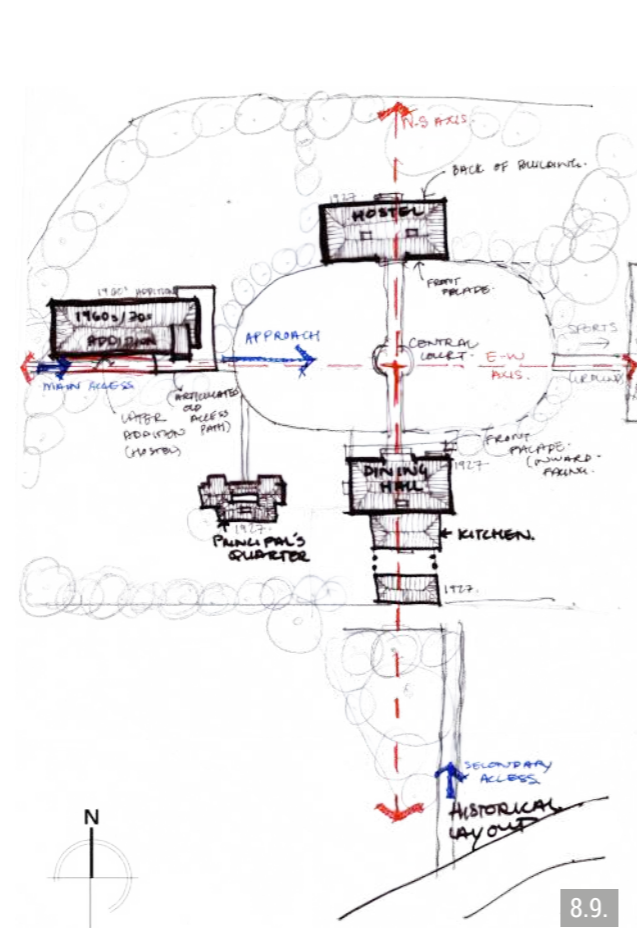 N-S AXIS.
BACK OF BUILDING.
1927.
HOSTEL
FRONT
FACADE.
1960s ADDITION
1960s/70s
ADDITION
APPROACH
CENTRAL
COURT.
E-W
AXIS.
SPORTS
GROUND
MAIN ACCESS
(ARTICULATED
OLD
ACCESS
PATH)
LATER
ADDITION
(HOSTEL)
FRONT
FACADE.
(INWARD-
FACING.
1927.
DINING
HALL
1927.
PRINCIPAL'S
QUARTER
KITCHEN.
1927.
SECONDARY
ACCESS.
HISTORICAL
LAYOUT
N
8.9.